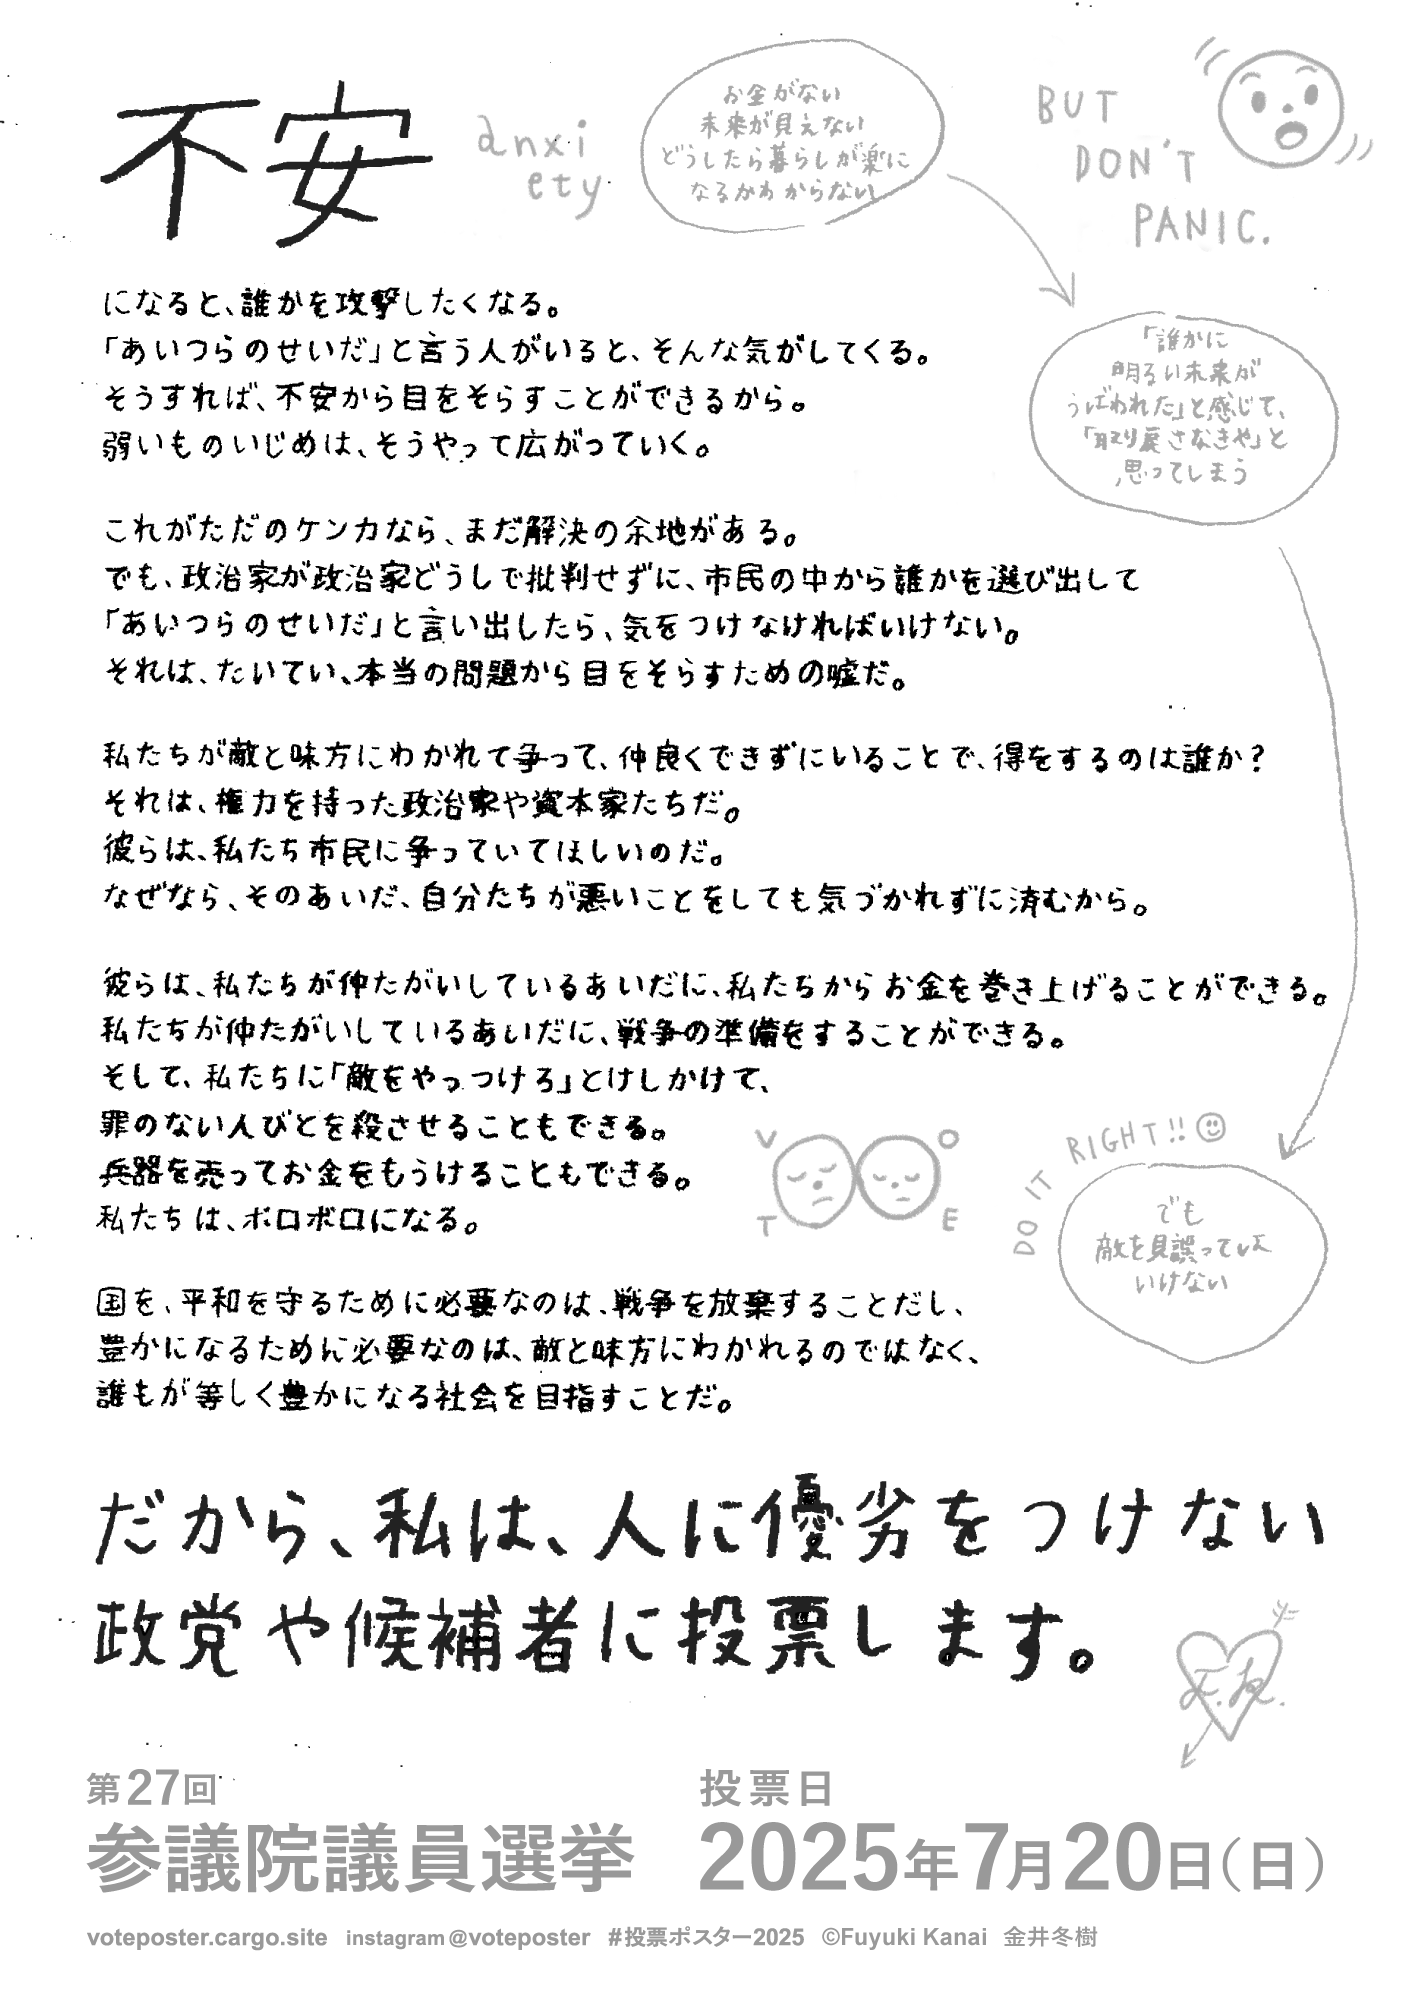 不安
anxi
ety
お金がない
未来が見えない
どうしたら暮らしが楽に
なるかわからない
BUT
DON'T
PANIC.
になると、誰かを攻撃したくなる。
「あいつらのせいだ」と言う人がいると、そんな気がしてくる。
そうすれば、不安から目をそらすことができるから。
弱いものいじめは、そうやって広がっていく。
「誰かに
明るい未来が
うばわれた」と感じて、
「取り戻さなきゃ」と
思ってしまう
これがただのケンカなら、まだ解決の余地がある。
でも、政治家が政治家どうしで批判せずに、市民の中から誰かを選び出して
「あいつらのせいだ」と言い出したら、気をつけなければいけない。
それは、たいてい、本当の問題から目をそらすための嘘だ。
私たちが敵と味方にわかれて争って、仲良くできずにいることで、得をするのは誰か?
それは、権力を持った政治家や資本家たちだ。
彼らは、私たち市民に争っていてほしいのだ。
なぜなら、そのあいだ、自分たちが悪いことをしても気づかれずに済むから。
彼らは、私たちが仲たがいしているあいだに、私たちからお金を巻き上げることができる。
私たちが仲たがいしているあいだに、戦争の準備をすることができる。
そして、私たちに「敵をやっつけろ」とけしかけて、
罪のない人びとを殺させることもできる。
兵器を売ってお金をもうけることもできる。
私たちは、ボロボロになる。
VOTE
DO IT RIGHT!!
でも
敵を見誤っては
いけない
国を、平和を守るために必要なのは、戦争を放棄することだし、
豊かになるために必要なのは、敵と味方にわかれるのではなく、
誰もが等しく豊かになる社会を目指すことだ。
だから、私は、人に優劣をつけない
政党や候補者に投票します。
第27回
参議院議員選挙
投票日
2025年7月20日(日)
voteposter.cargo.site instagram@voteposter #投票ポスター2025 ©Fuyuki Kanai 金井冬樹